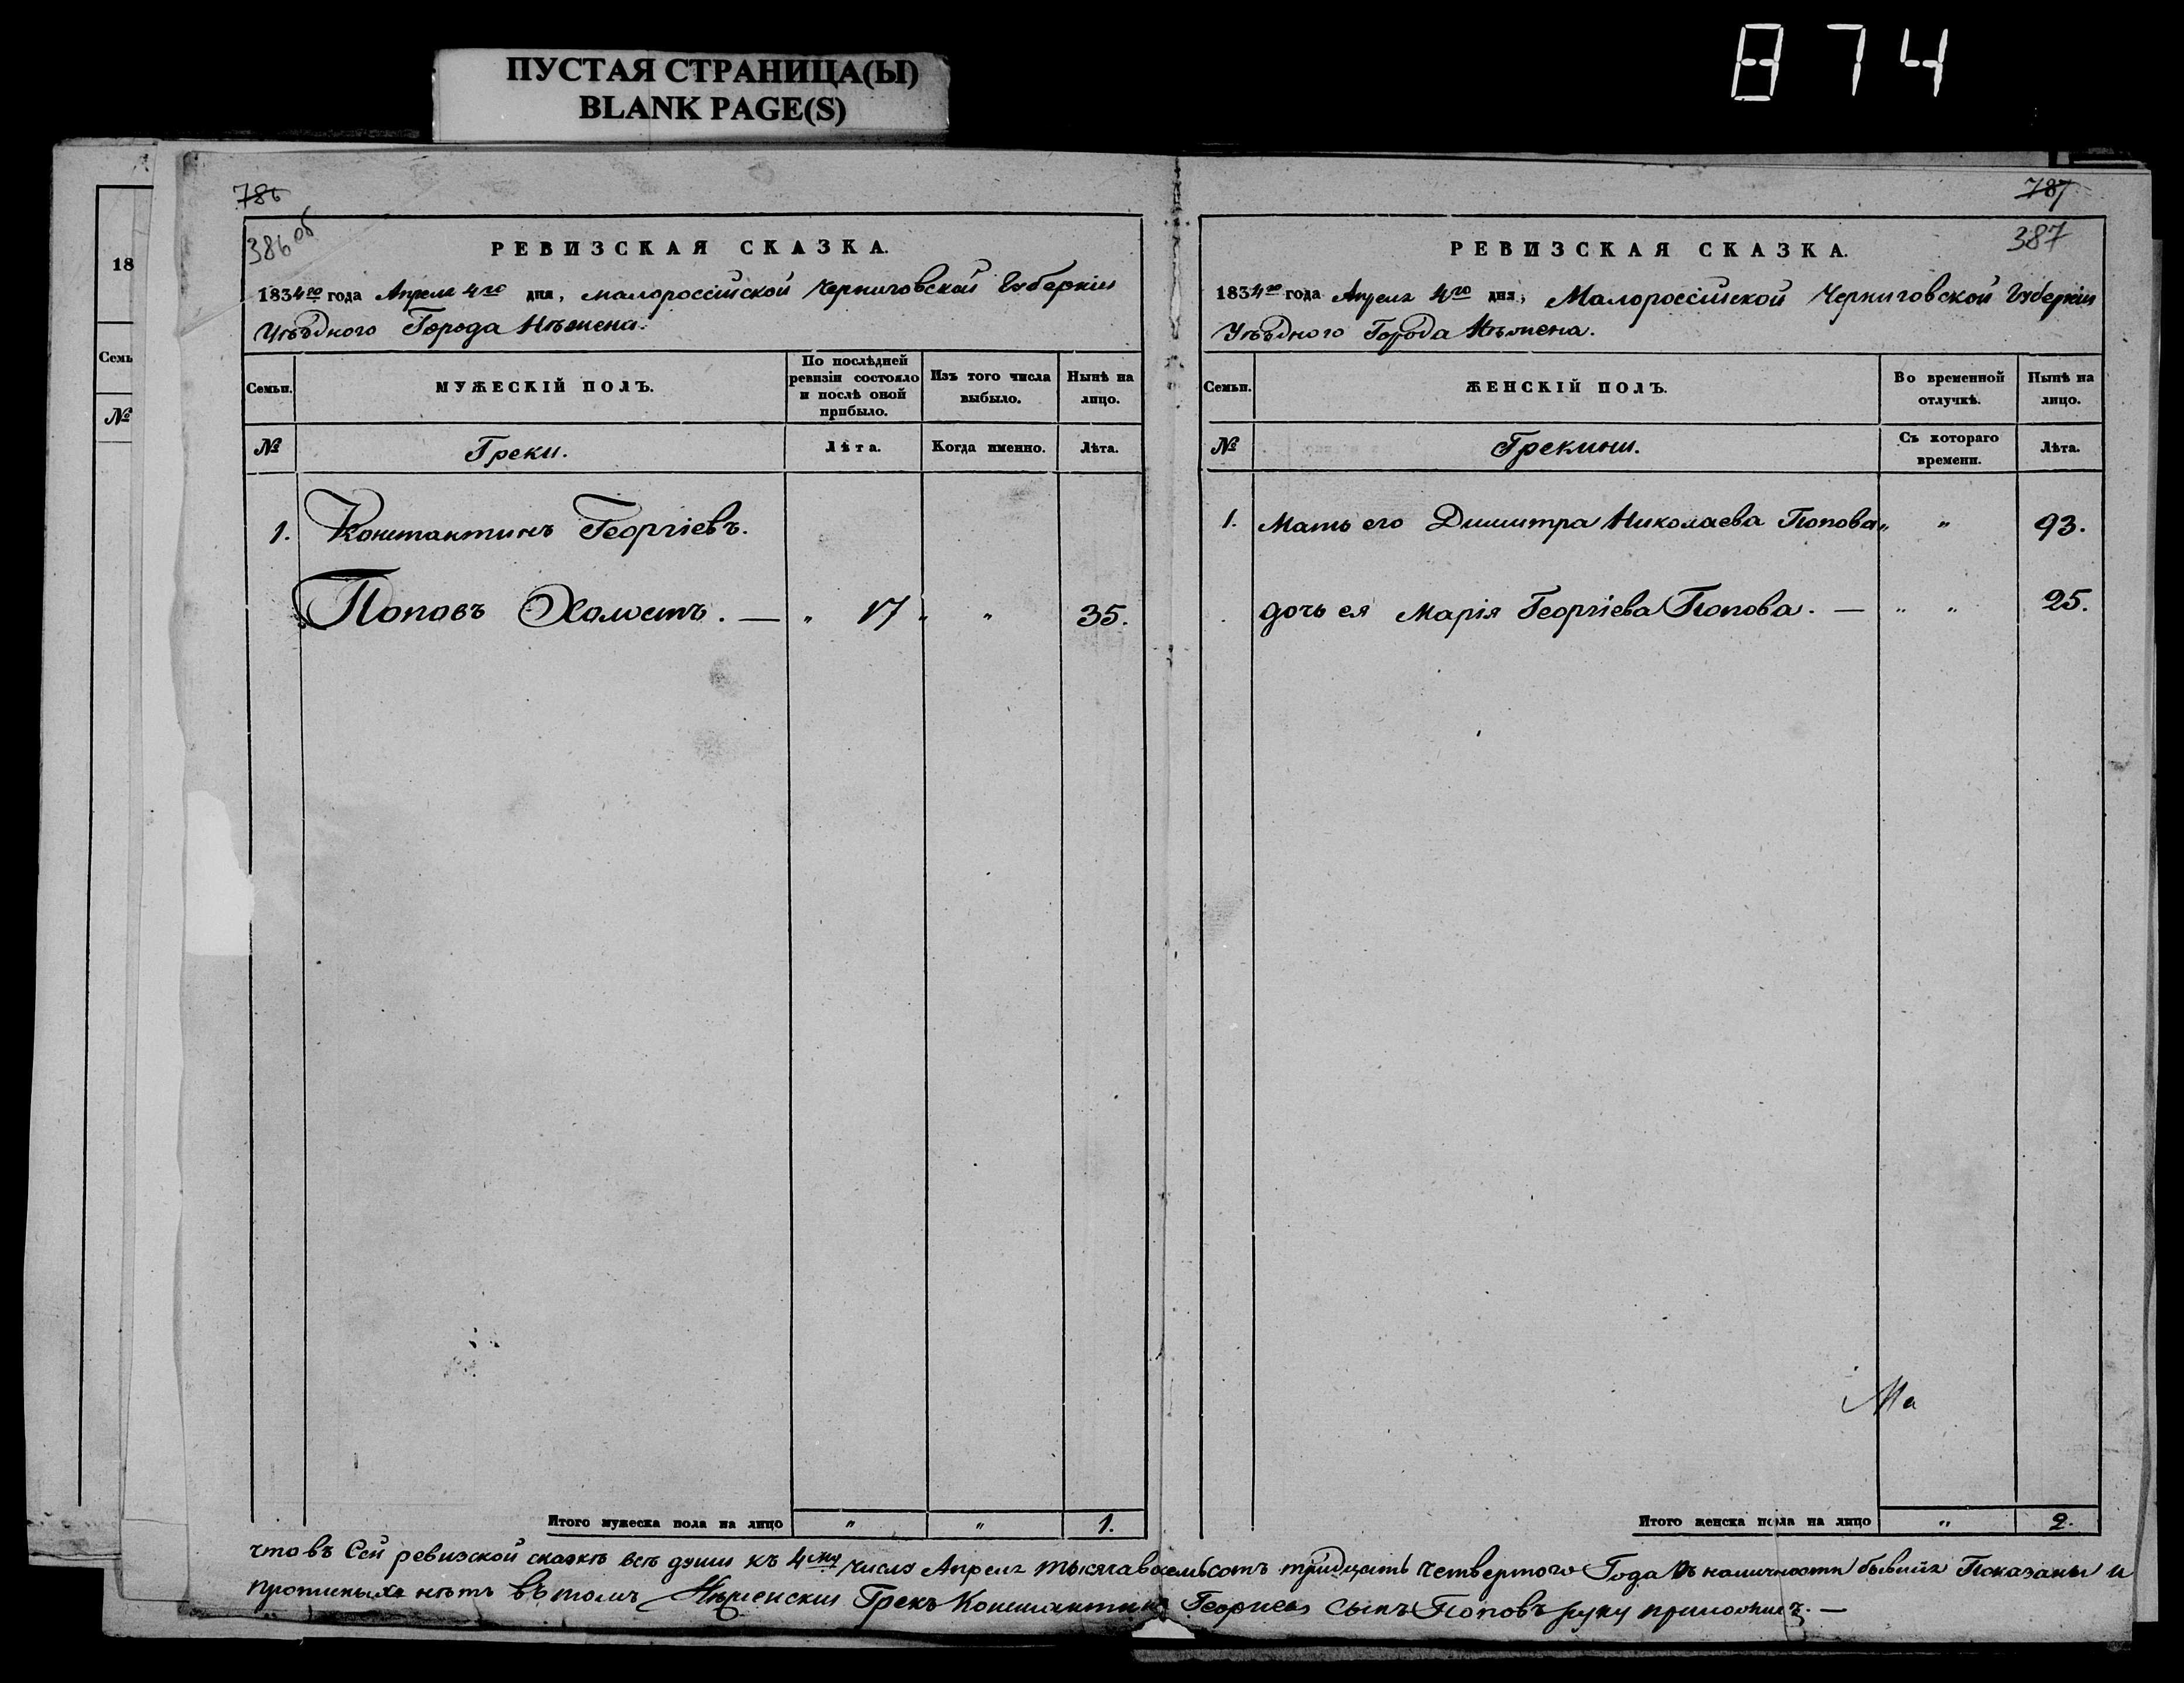 ПУСТАЯ СТРАНИЦА(Ы)
BLANK PAGE(S)
874
18
Семь
№
786
386 об
РЕВИЗСКАЯ СКАЗКА.
1834го года Апреля 4го дня, малороссійской Черниговской Губерніи
Уѣзднаго Города Нѣжена.
Семьи.
МУЖЕСКІЙ ПОЛЪ.
По послѣдней ревизіи состояло и послѣ оной прибыло.
Изъ того числа выбыло.
Нынѣ на лицо.
№
Греки.
Лѣта.
Когда именно.
Лѣта.
1. Константинъ Георгіевъ.
Поповъ Холостъ. — " 17 " " 35.
Итого мужеска пола на лицо " " 1.
787
387
РЕВИЗСКАЯ СКАЗКА.
1834го года Апреля 4го дня, Малороссійской Черниговской Губерніи
Уѣзднаго Города Нѣжена.
Семьи.
ЖЕНСКІЙ ПОЛЪ.
Во временной отлучкѣ.
Нынѣ на лицо.
№
Грекини.
Съ котораго времени.
Лѣта.
1. Мать его Димитра Николаева Попова " " 93.
дочь ея Марія Георгіева Попова. — " " 25.
Ма
Итого женска пола на лицо " 2.
что въ Сей ревизской сказкѣ всѣ души къ 4му числу Апреля тысяча восемьсотъ тридцать четвертого Года въ наличности бывшія Показаны и
прописныхъ нѣтъ въ томъ Нѣженскій Грекъ Константинъ Георгіевъ сынъ Поповъ руку приложилъ. —